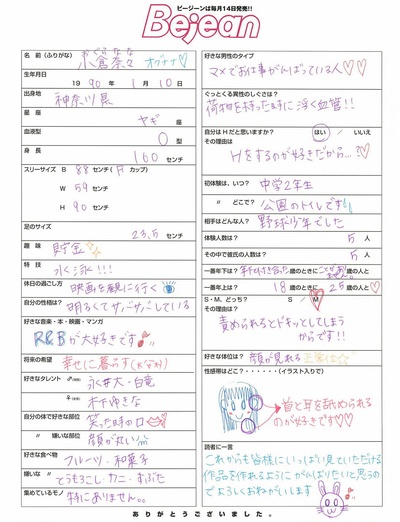 ビージーンは毎月14日発売!!
Bejean
名前(ふりがな) 小倉奈々 おぐら なな オグナナ♡
生年月日
1990年1月10日
出身地 神奈川県
星座 ヤギ座
血液型 O型
身長 160センチ
スリーサイズ B 88センチ(Fカップ)
W 59センチ
H 90センチ
足のサイズ 23.5センチ
趣味 貯金☆
特技 水泳!!!
休日の過ごし方 映画を観に行く
自分の性格は? 明るくてサバサバしている
好きな音楽・本・映画・マンガ
R&Bが大好きです♪
将来の希望 幸せに暮らす
好きなタレント ♂ 永井大・白竜
♀ 木下ゆきな
自分の体で好きな部位 笑った時の口
〃 嫌いな部位 顔が丸い
好きな食べ物 フルーツ・和菓子
嫌いな 〃 とうもろこし・カニ・すぶた
集めているモノ 特にありません。。
好きな男性のタイプ
マメでお仕事がんばっている人♡♡
ぐっとくる異性のしぐさは?
荷物を持った時に浮く血管!!
自分はHだと思いますか? はい / いいえ
その理由は
Hをするのが好きだから…?♡
体験人数は? 5人
その中で彼氏の人数は? 5人
一番年下は?
一番年上は? 18歳のときに25歳の人と
S・M、どっち? S / M
その理由は?
責められるとドキッとしてしまうからです!!
好きな体位は? 顔が見れる正常位☆
性感帯はどこ?・・・・・・(イラスト入りで)
首と耳を舐められるのが好きです♡
読者に一言
これからも皆様にいっぱい見ていただける
作品を作れるようにがんばりたいと思うの
でよろしくおねがいします
ありがとうございました。